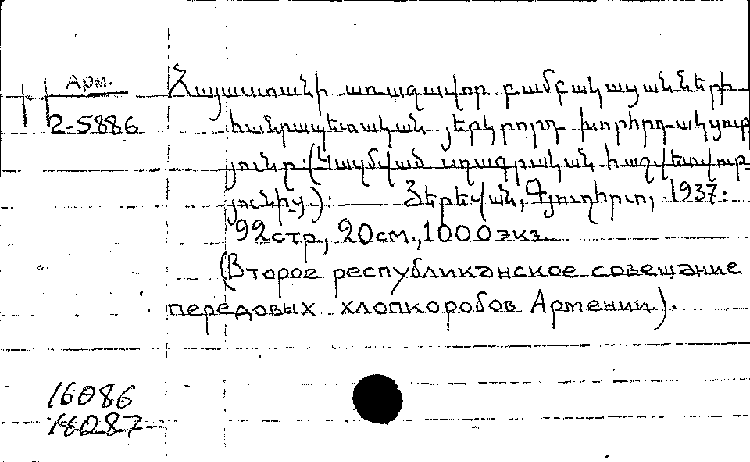 Арм.
2-5886
Հայաստանի առաջավոր բամբակացանների
հանրապետական յերկրորդ խորհրդակցութ
յունը (Կազմված սղագրական հաշվետվութ
յունից): Յերեվան, Գյուղհրատ, 1937:
92стр., 20см., 1000экз.
(Второе республиканское совещание
передовых хлопкоробов Армении).
16086
18087